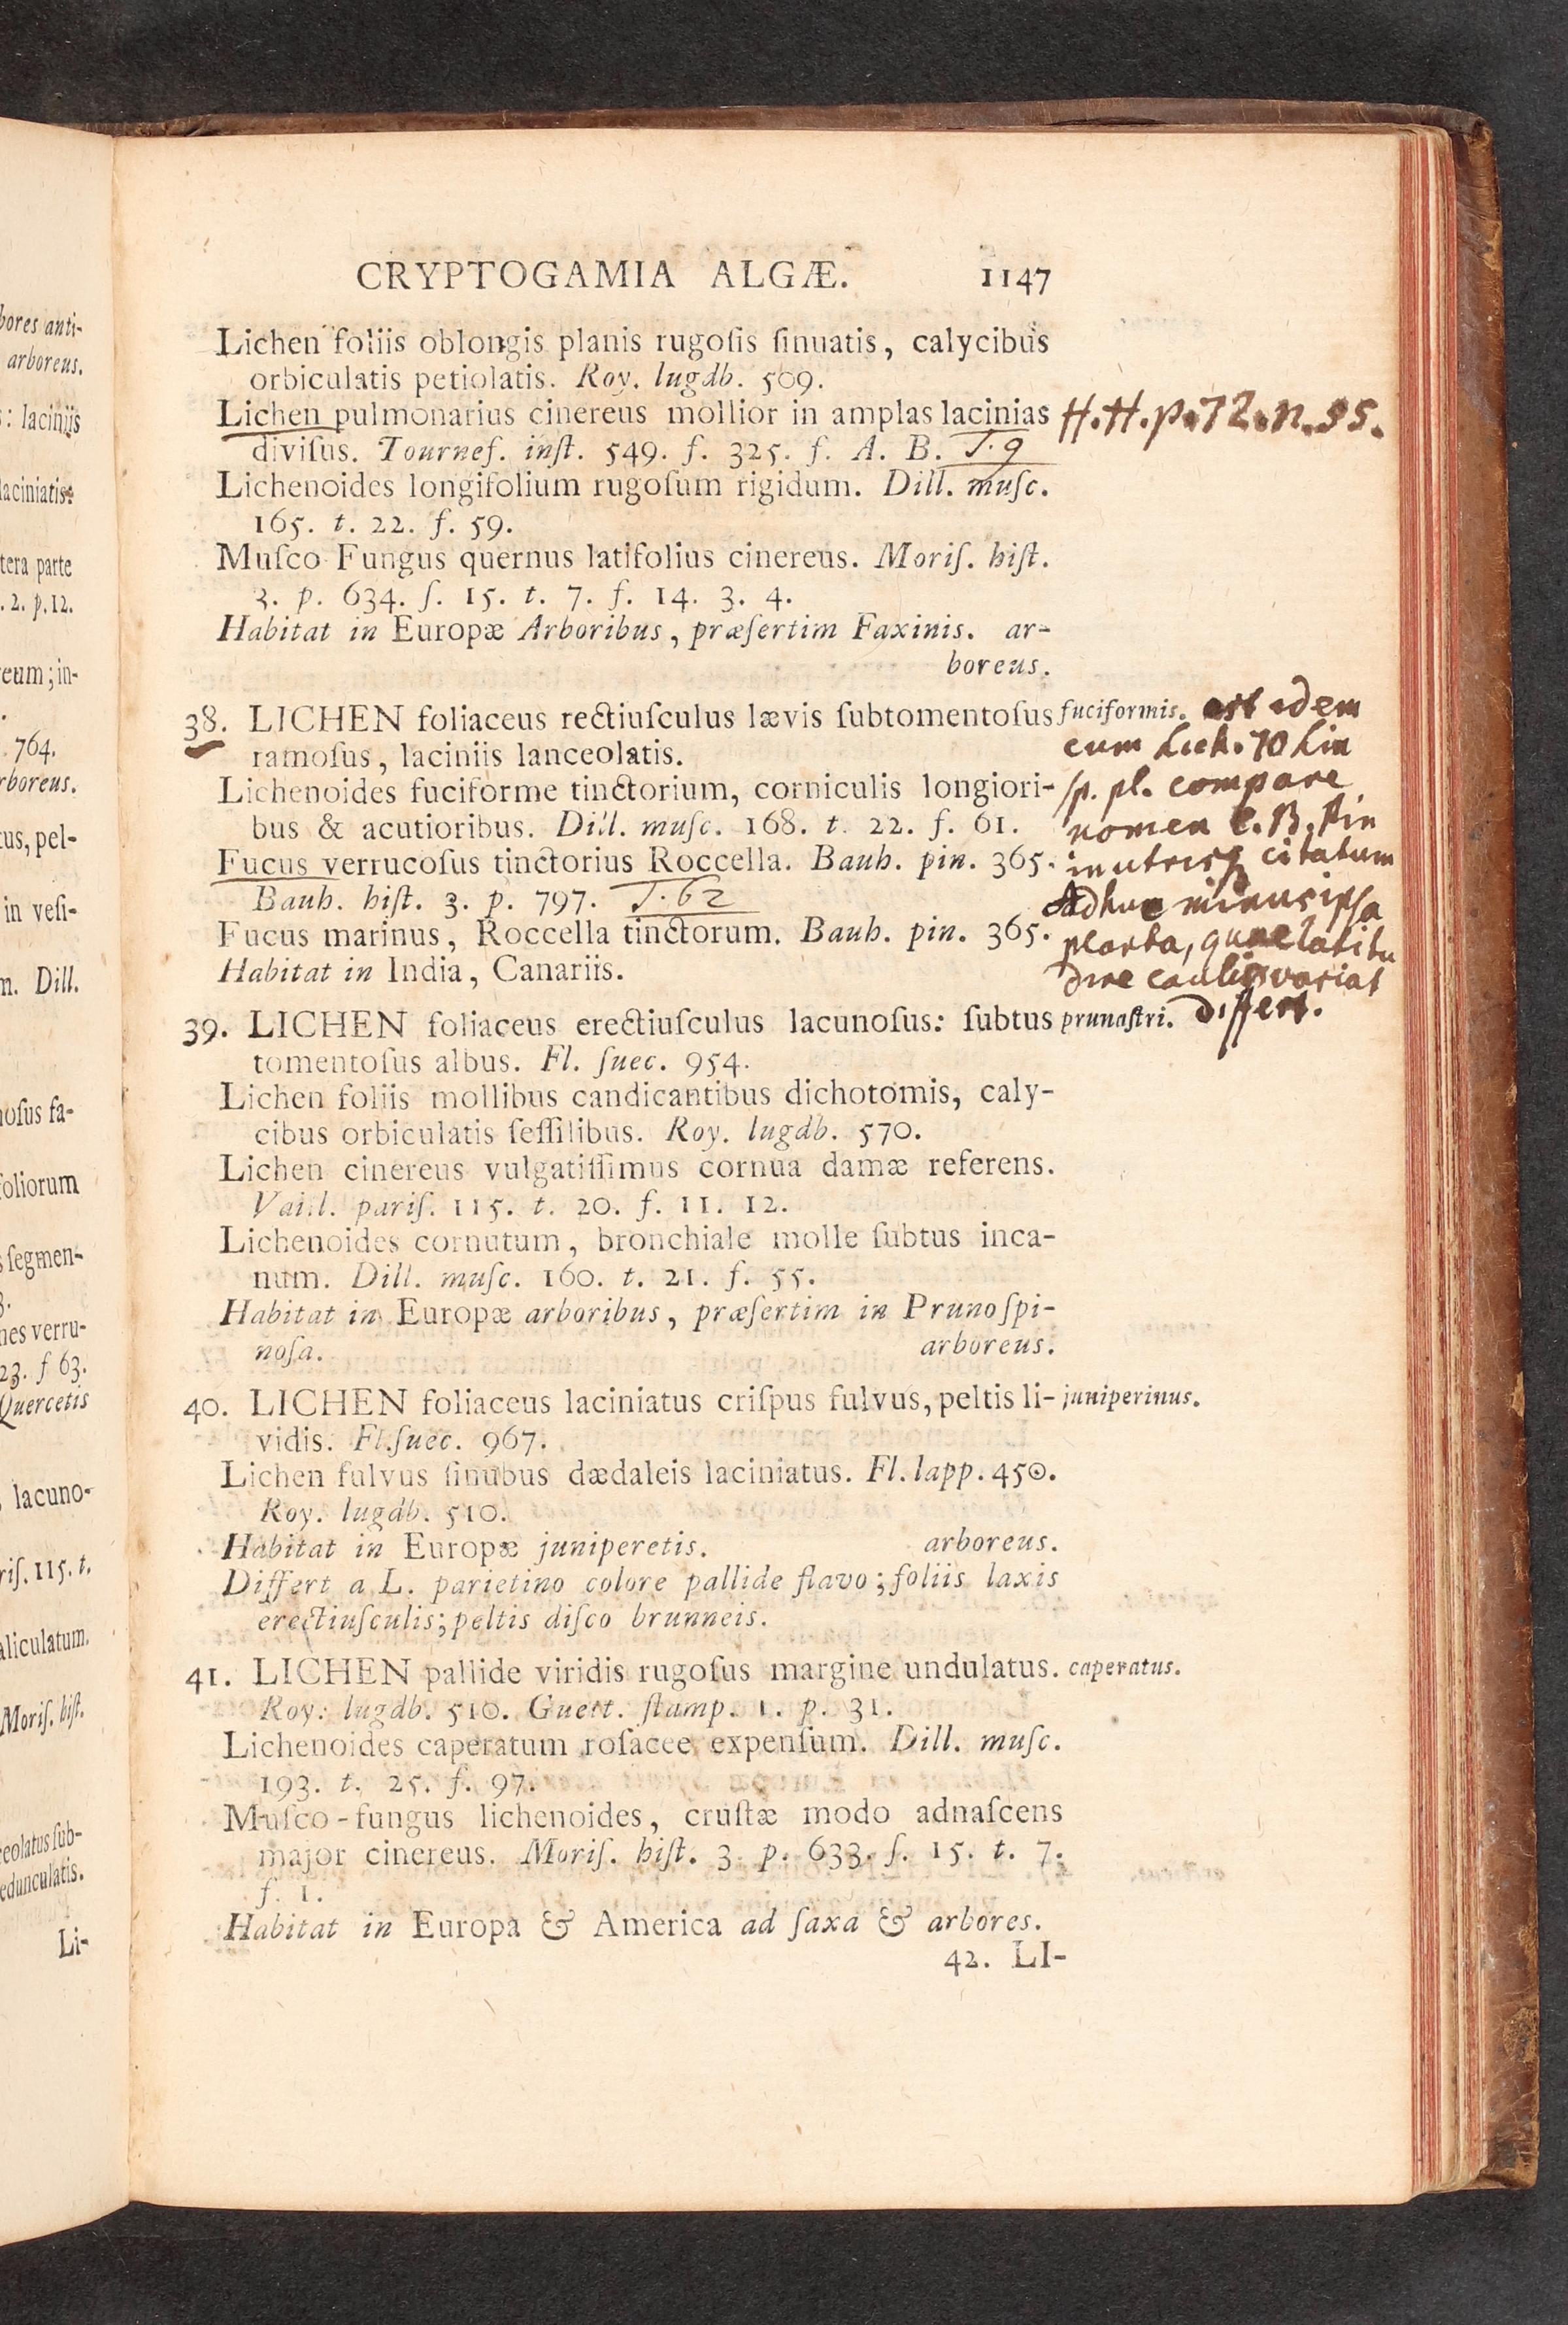 CRYPTOGAMIA ALGÆ. 1147
Lichen foliis oblongis planis rugoſis ſinuatis, calycibus
orbiculatis petiolatis. Roy. lugdb. 509.
Lichen pulmonarius cinereus mollior in amplas lacinias H.H.p.72.n.55.
diviſus. Tournef. inſt. 549. f. 325. f. A. B. T. 9
Lichenoides longifolium rugoſum rigidum. Dill. muſc.
165. t. 22. f. 59.
Muſco Fungus quernus latifolius cinereus. Moriſ. hiſt.
3. p. 634. ſ. 15. t. 7. f. 14. 3. 4.
Habitat in Europæ Arboribus, præſertim Faxinis. ar-
boreus.
38. LICHEN foliaceus rectiuſculus lævis ſubtomentoſus fuciformis. est idem
ramoſus, laciniis lanceolatis. cum Lich. 70 Lin
Lichenoides fuciforme tinctorium, corniculis longiori- sp. pl. compare
bus & acutioribus. Dill. muſc. 168. t. 22. f. 61. nomen C. B. Pin
Fucus verrucoſus tinctorius Roccella. Bauh. pin. 365. in utrisq citatum
Bauh. hiſt. 3. p. 797. T. 62 Adhuc minus ipsa
Fucus marinus, Roccella tinctorum. Bauh. pin. 365. planta, quae latitu
Habitat in India, Canariis. dine caulis variat
39. LICHEN foliaceus erectiuſculus lacunoſus: ſubtus prunaſtri. differt.
tomentoſus albus. Fl. ſuec. 954.
Lichen foliis mollibus candicantibus dichotomis, caly-
cibus orbiculatis ſeſſilibus. Roy. lugdb. 570.
Lichen cinereus vulgatiſſimus cornua damæ referens.
Vaill. pariſ. 115. t. 20. f. 11. 12.
Lichenoides cornutum, bronchiale molle ſubtus inca-
num. Dill. muſc. 160. t. 21. f. 55.
Habitat in Europæ arboribus, præſertim in Pruno ſpi-
noſa. arboreus.
40. LICHEN foliaceus laciniatus criſpus fulvus, peltis li- juniperinus.
vidis. Fl. ſuec. 967.
Lichen fulvus ſinubus dædaleis laciniatus. Fl. lapp. 450.
Roy. lugdb. 510.
Habitat in Europæ juniperetis. arboreus.
Differt a L. parietino colore pallide flavo; foliis laxis
erectiuſculis; peltis diſco brunneis.
41. LICHEN pallide viridis rugoſus margine undulatus. caperatus.
Roy. lugdb. 510. Guett. ſtamp. 1. p. 31.
Lichenoides caperatum roſacee expenſum. Dill. muſc.
193. t. 25. f. 97.
Muſco-fungus lichenoides, cruſtæ modo adnaſcens
major cinereus. Moriſ. hiſt. 3. p. 633. ſ. 15. t. 7.
f. 1.
Habitat in Europa & America ad ſaxa & arbores.
42. LI-
bores anti-
arboreus.
: laciniis
laciniatis:
tera parte
. 2. p. 12.
reum; in-
764.
rboreus.
tus, pel-
in veſi-
m. Dill.
noſus fa-
foliorum
ſegmen-
nes verru-
23. f 63.
Quercetis
, lacuno-
riſ. 115. t.
aliculatum.
Moriſ. hiſt.
ceolatus ſub-
edunculatis.
Li-